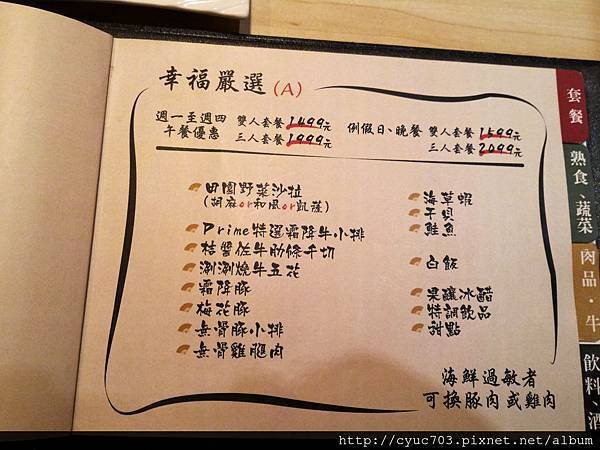 幸福嚴選(A)
週一至週四 雙人套餐1499元 例假日、晚餐 雙人套餐1599元
午餐優惠 三人套餐1999元 三人套餐2099元
田園野菜沙拉
(胡麻or和風or凱薩)
Prime特選霜降牛小排
桔醬佐牛肋條千切
涮涮燒牛五花
霜降豚
梅花豚
無骨豚小排
無骨雞腿肉
海草蝦
干貝
鮭魚
白飯
果釀冰醋
特調飲品
甜點
海鮮過敏者
可換豚肉或雞肉
套餐
熟食、蔬菜
肉品・牛
飲料、酒
http://cyuc703.pixnet.net/album